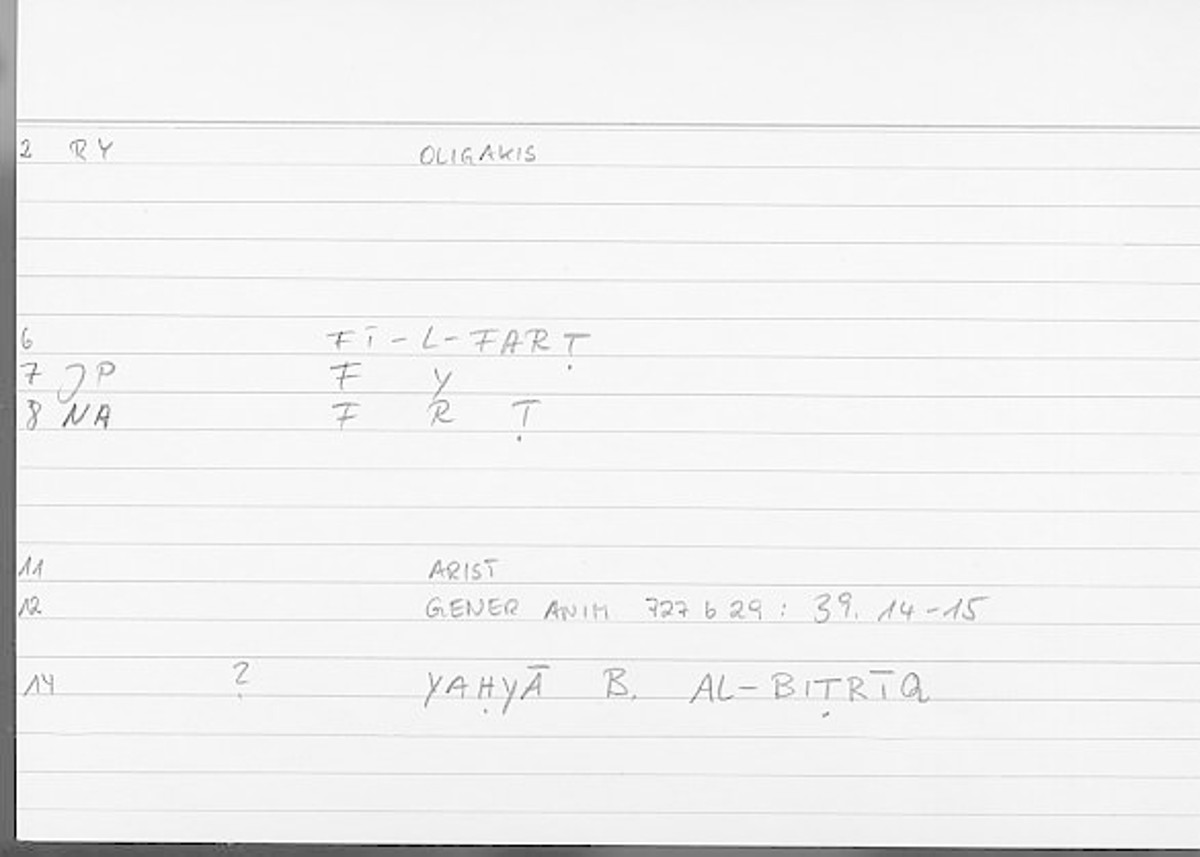 2 RY OLIGAKIS
6 FĪ-L-FARṬ
7 JP F Y
8 NA F R Ṭ
11 ARIST
12 GENER ANIM 727 b 29 : 39. 14-15
14 ? YAḤYĀ B. AL-BIṬRĪQ